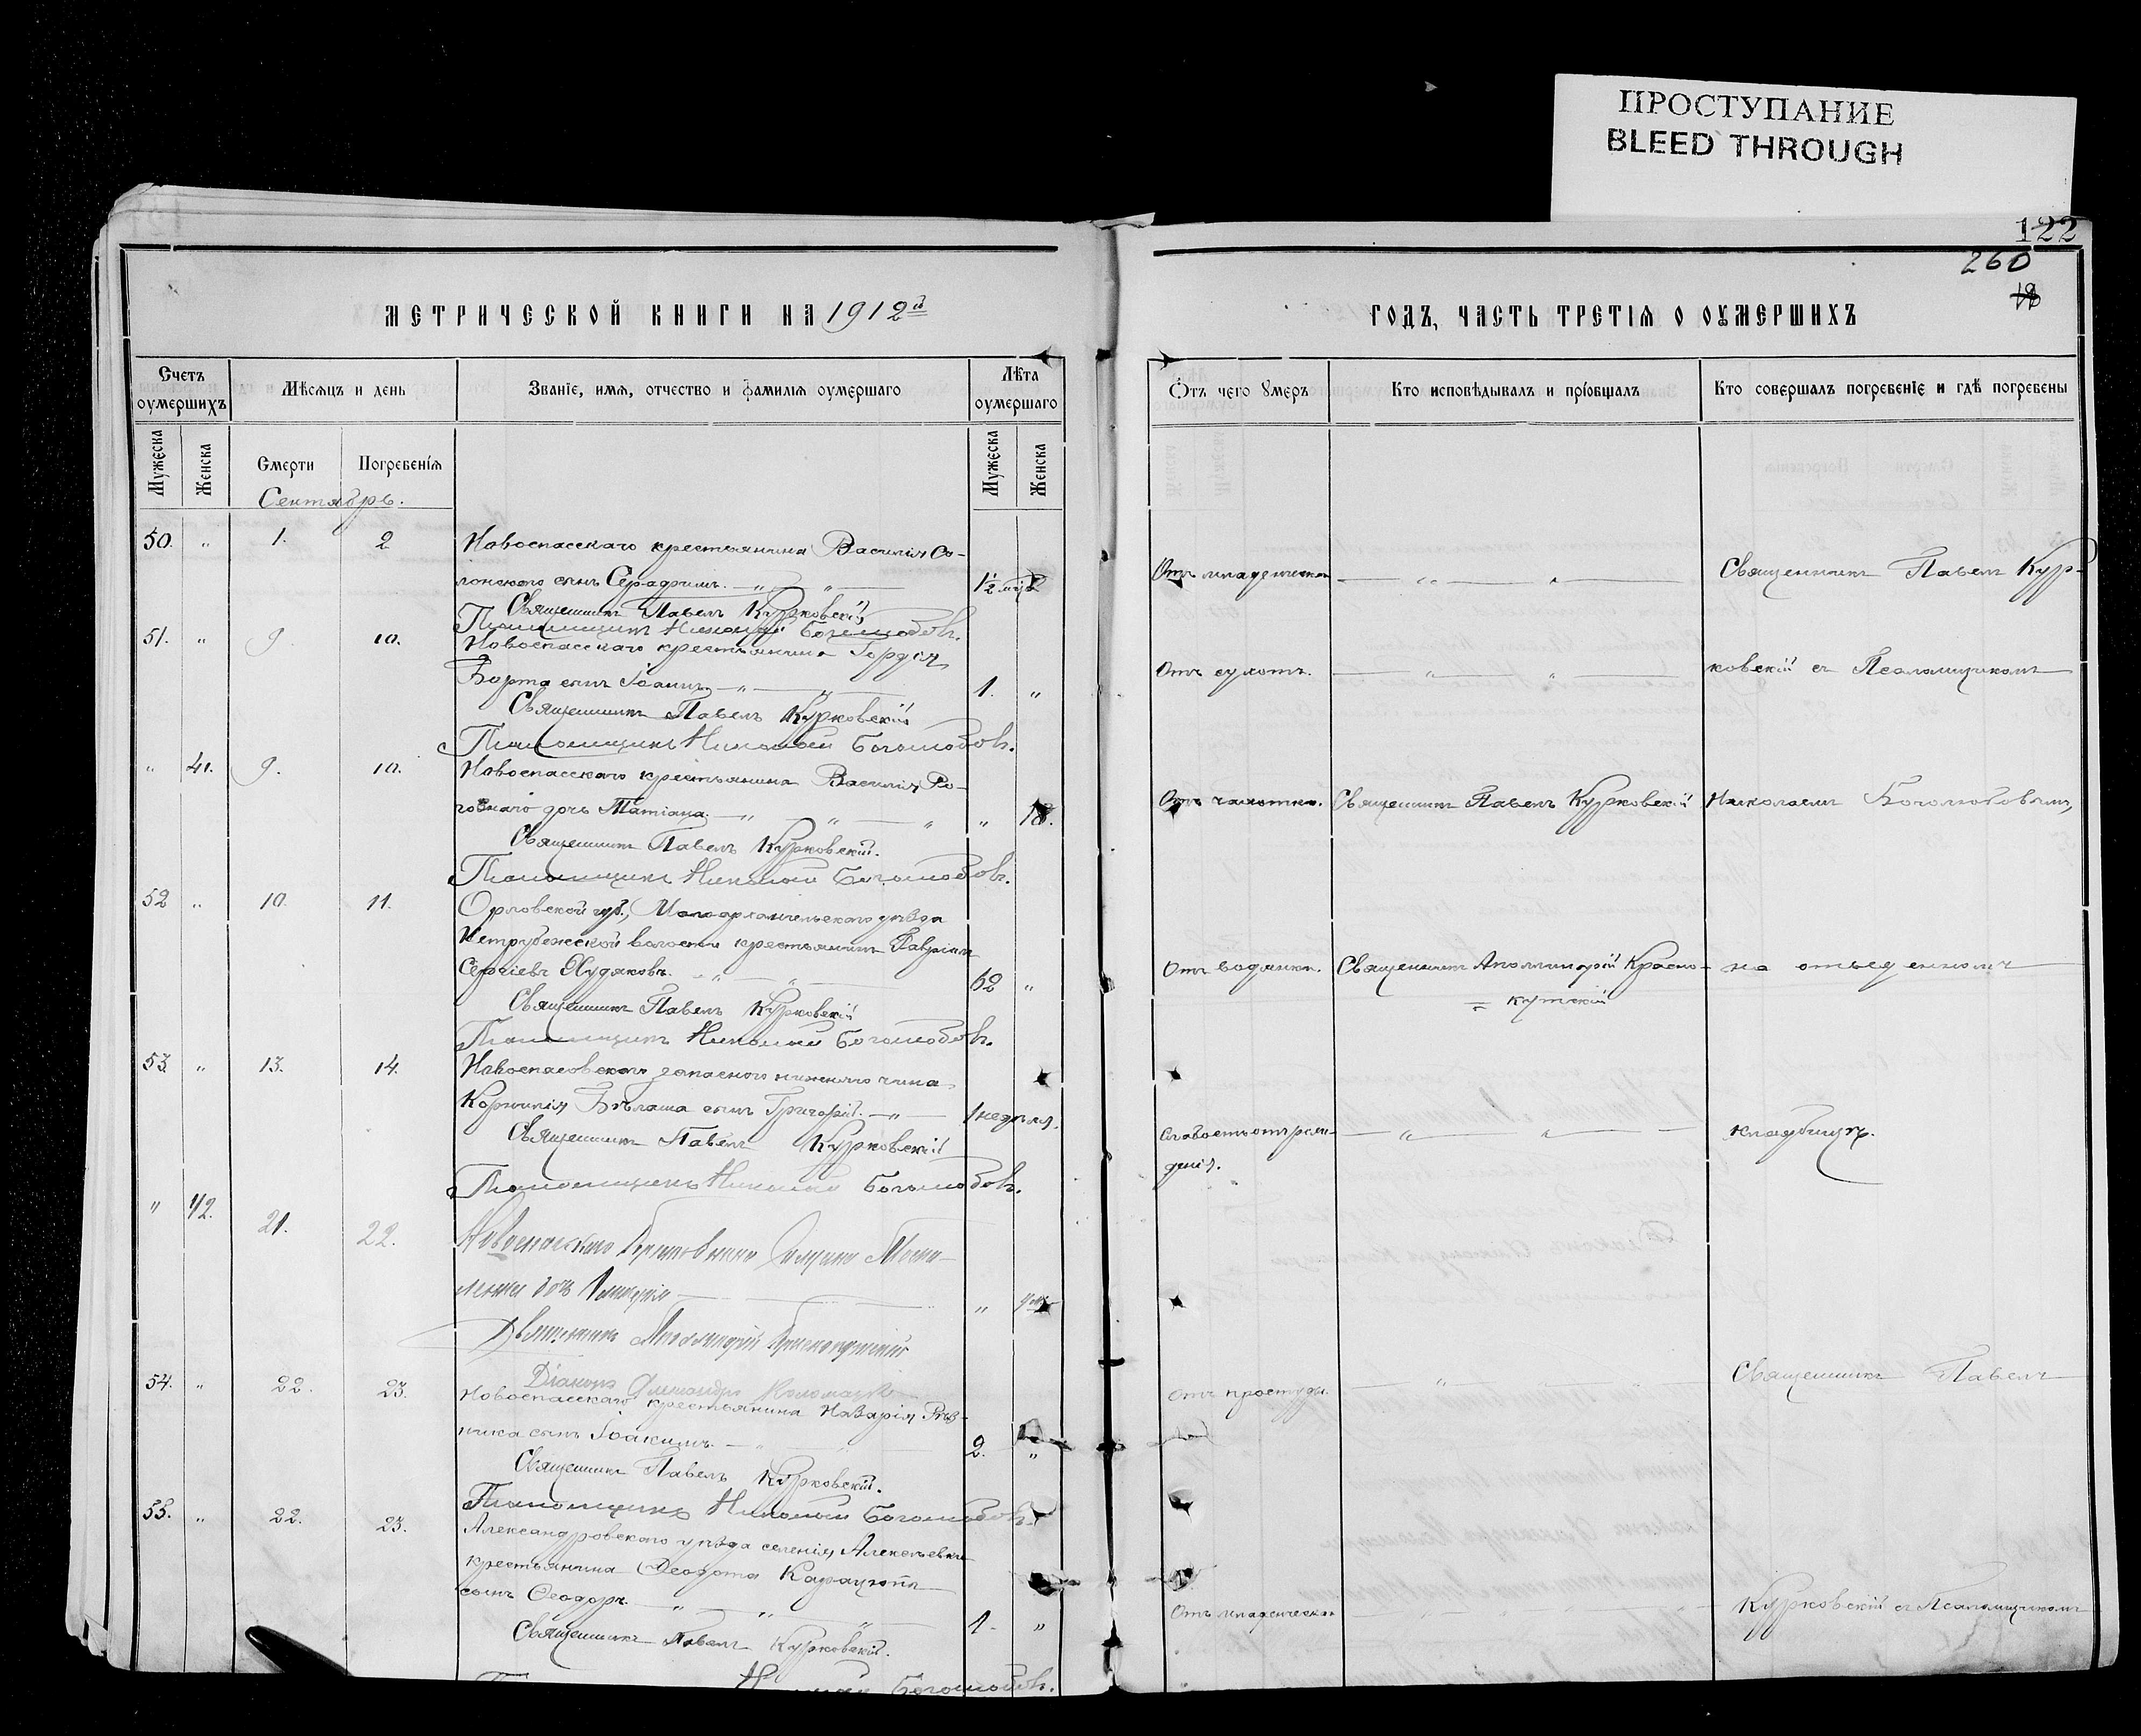 ПРОСТУПАНИЕ
BLEED THROUGH
122
260
МЕТРИЧЕСКОЙ КНИГИ НА 1912й
ГОДЪ, ЧАСТЬ ТРЕТІЯ О ОУМЕРШИХЪ
Счетъ оумершихъ
Мѣсяцъ и день
Званіе, имя, отчество и фамилія оумершаго
Лѣта оумершаго
Отъ чего умеръ
Кто исповѣдывалъ и пріобщалъ
Кто совершалъ погребеніе и гдѣ погребены
Мужеска
Женска
Смерти
Погребенія
Мужеска
Женска
Сентябрь.
50. " 1. 2 Новоспасскаго крестьянина Василія Со-
лонскаго сынъ Серафимъ. 1½ мѣс. Отъ младенческой Священникъ Павелъ Кур-
Священникъ Павелъ Курковскій
Псаломщикъ Николай Боголюбовъ.
51. " 9. 10. Новоспасскаго крестьянина Гордія
Борта сынъ Іоаннъ 1. " Отъ сухотъ. ковскій съ Псаломщикомъ
Священникъ Павелъ Курковскій
Псаломщикъ Николай Боголюбовъ.
" 41. 9. 10. Новоспасскаго крестьянина Василія Ро-
говнаго дочь Татіана. " 18. Отъ чахотки. Священникъ Павелъ Курковскій Николаемъ Боголюбовымъ,
Священникъ Павелъ Курковскій.
Псаломщикъ Николай Боголюбовъ.
52 " 10. 11. Орловской губ., Малоархангельскаго уѣзда
волости крестьянинъ Гавріилъ
Сергіевъ Худяковъ. 62 " Отъ водянки. Священникъ Аполлинарій Красно- на отведенномъ
= кутскій
Священникъ Павелъ Курковскій
Псаломщикъ Николай Боголюбовъ.
53. " 13. 14. Новоспасовскаго запаснаго нижняго чина
Корнилія Бѣлаша сынъ Григорій. 1 недѣля. Слабость отъ рож- кладбищѣ.
денія.
Священникъ Павелъ Курковскій
Псаломщикъ Николай Боголюбовъ.
" 42. 21. 22. Новоспасскаго
дочь "
Священникъ Аполлинарій Краснокутскій
Діаконъ Александръ
54. " 22. 23. Новоспасскаго крестьянина Назарія Рѣз-
ника сынъ Іоакимъ. 2. " Отъ простуды. Священникъ Павелъ
Священникъ Павелъ Курковскій.
Псаломщикъ Николай Боголюбовъ.
55. " 22. 23. Александровскаго уѣзда селенія Алексѣевки
крестьянина Ѳеодота
сынъ Ѳеодоръ. 1. " Отъ младенческой Курковскій съ Псаломщикомъ
Священникъ Павелъ Курковскій.
Николай Боголюбовъ.